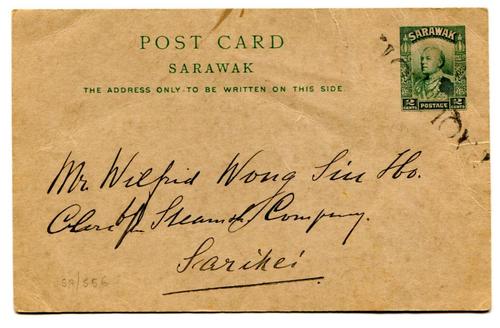 POST CARD
SARAWAK
THE ADDRESS ONLY TO BE WRITTEN ON THIS SIDE
SARAWAK
2 CENTS POSTAGE 2 CENTS
Mr. Wilfrid Wong Siu Ho.
Steamsh Company.
Sarikei
SA/556